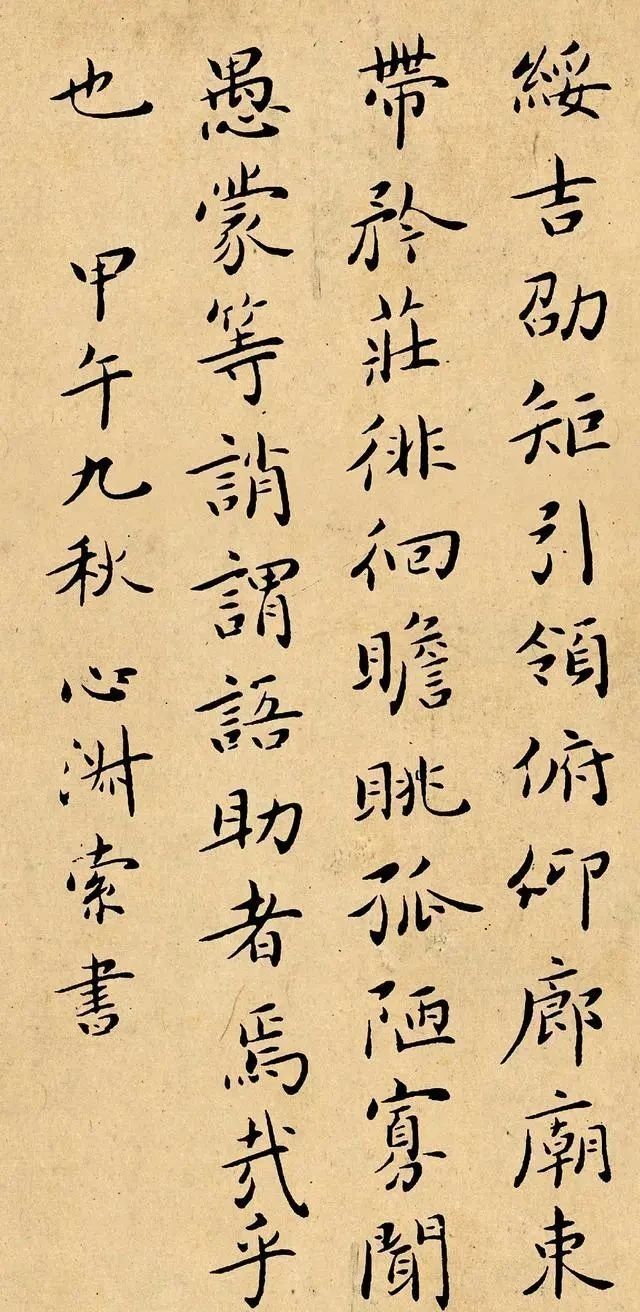 綏吉劭矩引領俯仰廊廟束
帶矜莊徘徊瞻眺孤陋寡聞
愚蒙等誚謂語助者焉哉乎
也 甲午九秋心淵索書